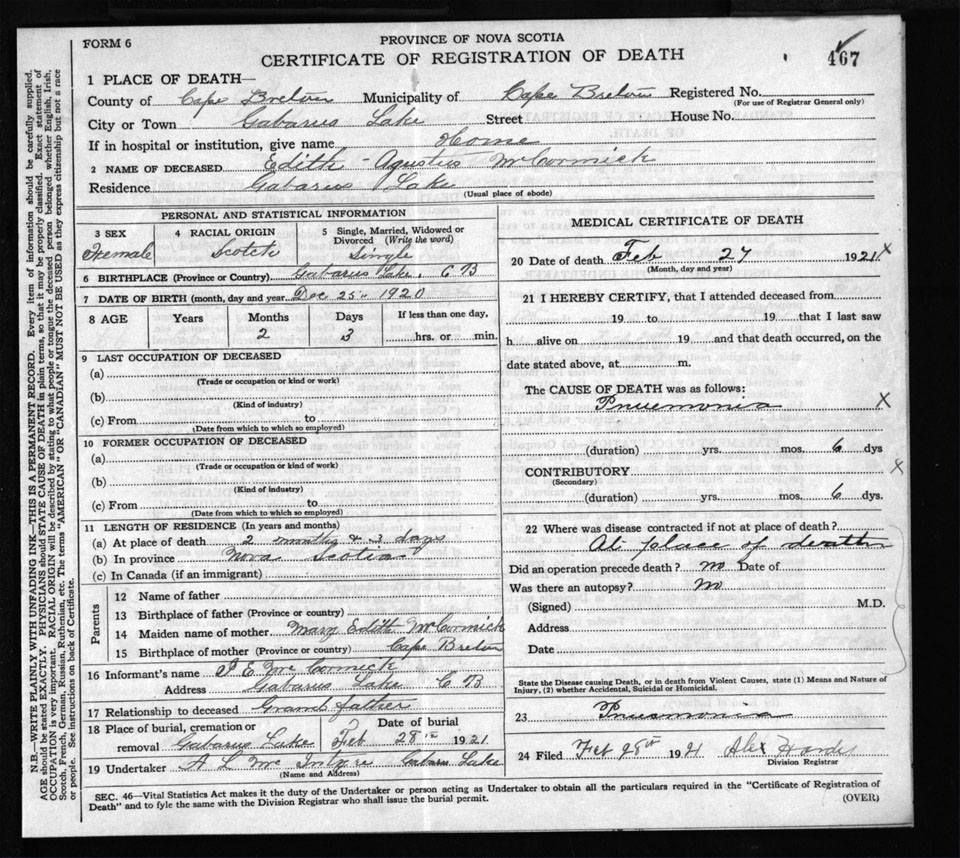 FORM 6
PROVINCE OF NOVA SCOTIA
CERTIFICATE OF REGISTRATION OF DEATH
467
1 PLACE OF DEATH—
County of Cape Breton Municipality of Cape Breton Registered No.
(For use of Registrar General only)
City or Town Gabarus Lake Street House No.
If in hospital or institution, give name Home
2 NAME OF DECEASED Edith Agustus McCormick
Residence Gabarus Lake
(Usual place of abode)
PERSONAL AND STATISTICAL INFORMATION
3 SEX 4 RACIAL ORIGIN 5 Single, Married, Widowed or
Divorced (Write the word)
Female Scotch Single
6 BIRTHPLACE (Province or Country) Gabarus Lake, C B
7 DATE OF BIRTH (month, day and year Dec 25th 1920
8 AGE Years Months Days If less than one day,
2 3 hrs. or min.
9 LAST OCCUPATION OF DECEASED
(a)
(Trade or occupation or kind or work)
(b)
(Kind of industry)
(c) From to
(Date from which to which so employed)
10 FORMER OCCUPATION OF DECEASED
(a)
(Trade or occupation or kind or work)
(b)
(Kind of industry)
(c) From to
(Date from which to which so employed)
11 LENGTH OF RESIDENCE (In years and months)
(a) At place of death 2 months & 3 days
(b) In province Nova Scotia
(c) In Canada (if an immigrant)
Parents
12 Name of father
13 Birthplace of father (Province or country)
14 Maiden name of mother Mary Edith McCormick
15 Birthplace of mother (Province or country) Cape Breton
16 Informant's name P E McCormick
Address Gabarus Lake C B
17 Relationship to deceased Grand father
18 Place of burial, cremation or Date of burial
removal Gabarus Lake Feb 28th 1921
19 Undertaker A L McIntyre Gabarus Lake
(Name and Address)
MEDICAL CERTIFICATE OF DEATH
20 Date of death Feb 27 1921 X
(Month, day and year)
21 I HEREBY CERTIFY, that I attended deceased from
19 to 19 that I last saw
h alive on 19 and that death occurred, on the
date stated above, at m.
The CAUSE OF DEATH was as follows:
Pnuemonia X
(duration) yrs. mos. 6 dys
CONTRIBUTORY X
(Secondary)
(duration) yrs. mos. 6 dys.
22 Where was disease contracted if not at place of death?
At place of death
Did an operation precede death? no Date of
Was there an autopsy? no
(Signed) M.D.
Address
Date
State the Disease causing Death, or in death from Violent Causes, state (1) Means and Nature of
Injury, (2) whether Accidental, Suicidal or Homicidal.
23 Pnuemonia
24 Filed Feb 28th 1921 Alex Hardy
Division Registrar
SEC. 46—Vital Statistics Act makes it the duty of the Undertaker or person acting as Undertaker to obtain all the particulars required in the "Certificate of Registration of
Death" and to fyle the same with the Division Registrar who shall issue the burial permit.
(OVER)
N.B.—WRITE PLAINLY WITH UNFADING INK—THIS IS A PERMANENT RECORD. Every item of information should be carefully supplied.
AGE should be stated EXACTLY. PHYSICIANS should STATE CAUSE OF DEATH in plain terms, so that it may be properly classified. Exact statement of
OCCUPATION is very important. RACIAL ORIGIN will be described by stating to what people or tongue the deceased person belonged, whether English, Irish,
Scotch, French, German, Russian, Ruthenian, etc. The terms "AMERICAN" OR "CANADIAN" MUST NOT BE USED as they express citizenship but not a race
or people. See instructions on back of Certificate.